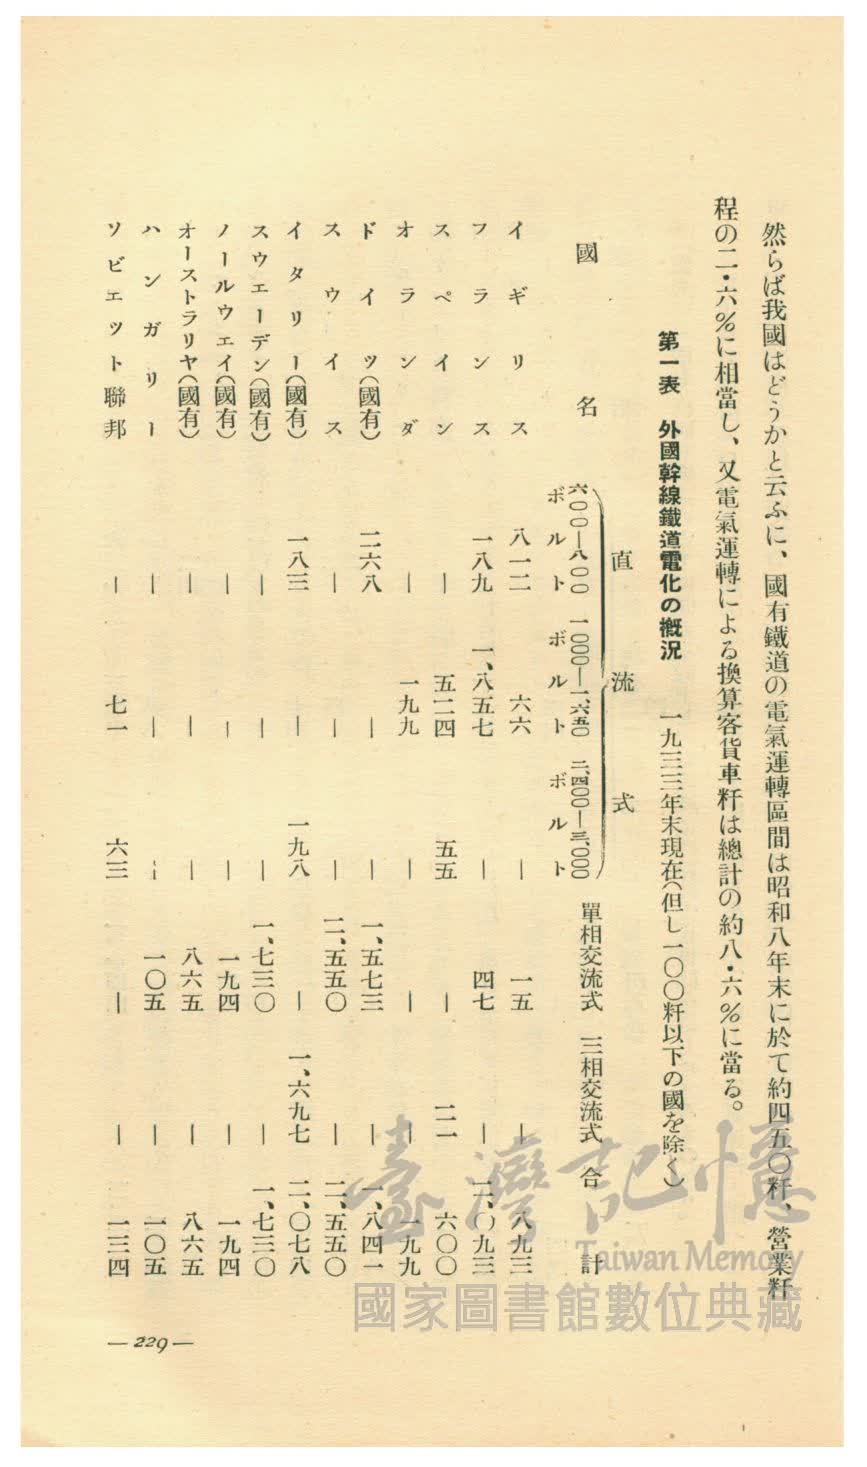 然らば我國はどうかと云ふに、國有鐵道の電氣運轉區間は昭和八年末に於て約四五〇粁、營業粁
程の二・六%に相當し、又電氣運轉による換算客貨車粁は總計の約八・六%に當る。
第一表　外國幹線鐵道電化の槪況　一九三三年末現在(但し一〇〇粁以下の國を除く)
直流式
國名　六〇〇―八〇〇ボルト　一〇〇〇―一、六五〇ボルト　二、四〇〇―三、〇〇〇ボルト　單相交流式　三相交流式　合計
イギリス　八一二　六六　―　一五　―　八九三
フランス　一八九　一、八五七　―　四七　―　二、〇九三
スペイン　―　五二四　五五　―　二一　六〇〇
オランダ　―　一九九　―　―　―　一九九
ドイツ(國有)　二六八　―　―　一、五七三　―　一、八四一
スウイス　―　―　―　二、五五〇　―　二、五五〇
イタリー(國有)　一八三　―　一九八　―　一、六九七　二、〇七八
スウエーデン(國有)　―　―　―　一、七三〇　―　一、七三〇
ノールウエイ(國有)　―　―　―　一九四　―　一九四
オーストラリヤ(國有)　―　―　―　八六五　―　八六五
ハンガリー　―　―　―　一〇五　―　一〇五
ソビエット聯邦　―　七一　六三　―　―　一三四
―229―
臺灣記憶
Taiwan Memory
國家圖書館數位典藏